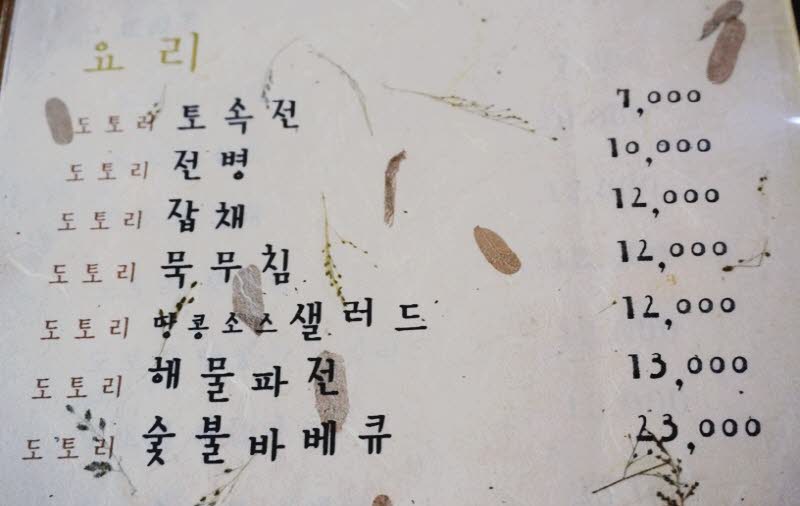 요리
도토리 토속전 7,000
도토리 전병 10,000
도토리 잡채 12,000
도토리 묵무침 12,000
도토리 땅콩소스샐러드 12,000
도토리 해물파전 13,000
도토리 숯불바베큐 23,000